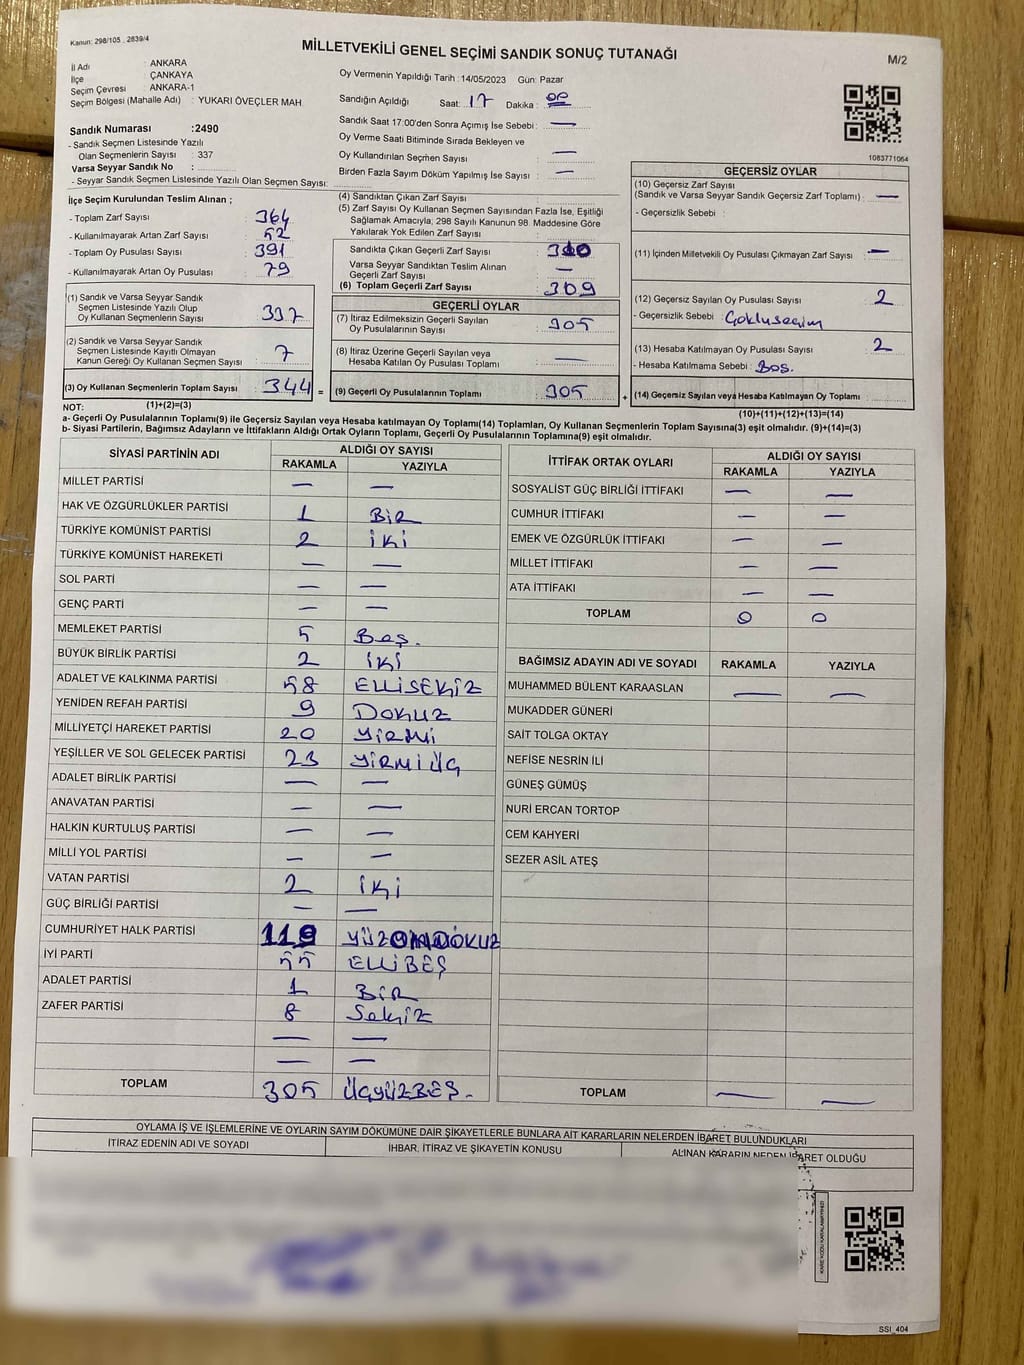 Kanun: 298/105 , 2839/4
MİLLETVEKİLİ GENEL SEÇİMİ SANDIK SONUÇ TUTANAĞI
M/2
İl Adı : ANKARA
İlçe : ÇANKAYA
Seçim Çevresi : ANKARA-1
Seçim Bölgesi (Mahalle Adı) : YUKARI ÖVEÇLER MAH.
Sandık Numarası :2490
- Sandık Seçmen Listesinde Yazılı
Olan Seçmenlerin Sayısı : 337
Varsa Seyyar Sandık No :
- Seyyar Sandık Seçmen Listesinde Yazılı Olan Seçmen Sayısı:
Oy Vermenin Yapıldığı Tarih :14/05/2023 Gün: Pazar
Sandığın Açıldığı Saat: 17 Dakika : 00
Sandık Saat 17:00'den Sonra Açımış İse Sebebi : —
Oy Verme Saati Bitiminde Sırada Bekleyen ve
Oy Kullandırılan Seçmen Sayısı : —
Birden Fazla Sayım Döküm Yapılmış İse Sayısı : —
1083771064
İlçe Seçim Kurulundan Teslim Alınan ;
- Toplam Zarf Sayısı : 364
- Kullanılmayarak Artan Zarf Sayısı : 52
- Toplam Oy Pusulası Sayısı : 391
- Kullanılmayarak Artan Oy Pusulası : 79
(1) Sandık ve Varsa Seyyar Sandık
Seçmen Listesinde Yazılı Olup
Oy Kullanan Seçmenlerin Sayısı : 337
(2) Sandık ve Varsa Seyyar Sandık
Seçmen Listesinde Kayıtlı Olmayan
Kanun Gereği Oy Kullanan Seçmen Sayısı : 7
(3) Oy Kullanan Seçmenlerin Toplam Sayısı : 344 =
(1)+(2)=(3)
(4) Sandıktan Çıkan Zarf Sayısı :
(5) Zarf Sayısı Oy Kullanan Seçmen Sayısından Fazla İse, Eşitliği
Sağlamak Amacıyla; 298 Sayılı Kanunun 98. Maddesine Göre
Yakılarak Yok Edilen Zarf Sayısı :
Sandıkta Çıkan Geçerli Zarf Sayısı :
Varsa Seyyar Sandıktan Teslim Alınan
Geçerli Zarf Sayısı : —
(6) Toplam Geçerli Zarf Sayısı : 309
GEÇERLİ OYLAR
(7) İtiraz Edilmeksizin Geçerli Sayılan
Oy Pusulalarının Sayısı : 305
(8) İtiraz Üzerine Geçerli Sayılan veya
Hesaba Katılan Oy Pusulası Toplamı : —
(9) Geçerli Oy Pusulalarının Toplamı : 305 +
GEÇERSİZ OYLAR
(10) Geçersiz Zarf Sayısı
(Sandık ve Varsa Seyyar Sandık Geçersiz Zarf Toplamı) : —
- Geçersizlik Sebebi :
(11) İçinden Milletvekili Oy Pusulası Çıkmayan Zarf Sayısı : —
(12) Geçersiz Sayılan Oy Pusulası Sayısı : 2
- Geçersizlik Sebebi : Çokluseçim
(13) Hesaba Katılmayan Oy Pusulası Sayısı : 2
- Hesaba Katılmama Sebebi : Boş.
(14) Geçersiz Sayılan veya Hesaba Katılmayan Oy Toplamı :
(10)+(11)+(12)+(13)=(14)
NOT:
a- Geçerli Oy Pusulalarının Toplamı(9) ile Geçersiz Sayılan veya Hesaba katılmayan Oy Toplamı(14) Toplamları, Oy Kullanan Seçmenlerin Toplam Sayısına(3) eşit olmalıdır. (9)+(14)=(3)
b- Siyasi Partilerin, Bağımsız Adayların ve İttifakların Aldığı Ortak Oyların Toplamı, Geçerli Oy Pusulalarının Toplamına(9) eşit olmalıdır.
SİYASİ PARTİNİN ADI
ALDIĞI OY SAYISI
RAKAMLA YAZIYLA
MİLLET PARTİSİ — —
HAK VE ÖZGÜRLÜKLER PARTİSİ 1 BİR
TÜRKİYE KOMÜNİST PARTİSİ 2 İKİ
TÜRKİYE KOMÜNİST HAREKETİ — —
SOL PARTİ — —
GENÇ PARTİ — —
MEMLEKET PARTİSİ 5 Beş.
BÜYÜK BİRLİK PARTİSİ 2 İKİ
ADALET VE KALKINMA PARTİSİ 58 ELLİSEKİZ
YENİDEN REFAH PARTİSİ 9 DOKUZ
MİLLİYETÇİ HAREKET PARTİSİ 20 YİRMİ
YEŞİLLER VE SOL GELECEK PARTİSİ 23 YİRMİ ÜÇ
ADALET BİRLİK PARTİSİ — —
ANAVATAN PARTİSİ — —
HALKIN KURTULUŞ PARTİSİ — —
MİLLİ YOL PARTİSİ — —
VATAN PARTİSİ 2 İKİ
GÜÇ BİRLİĞİ PARTİSİ — —
CUMHURİYET HALK PARTİSİ 119 YÜZONDOKUZ
İYİ PARTİ 55 ELLİBEŞ
ADALET PARTİSİ 1 BİR
ZAFER PARTİSİ 8 Sekiz
— —
— —
TOPLAM 305 ÜÇYÜZBEŞ.
İTTİFAK ORTAK OYLARI
ALDIĞI OY SAYISI
RAKAMLA YAZIYLA
SOSYALİST GÜÇ BİRLİĞİ İTTİFAKI — —
CUMHUR İTTİFAKI — —
EMEK VE ÖZGÜRLÜK İTTİFAKI — —
MİLLET İTTİFAKI — —
ATA İTTİFAKI — —
TOPLAM 0 0
BAĞIMSIZ ADAYIN ADI VE SOYADI RAKAMLA YAZIYLA
MUHAMMED BÜLENT KARAASLAN — —
MUKADDER GÜNERİ
SAİT TOLGA OKTAY
NEFİSE NESRİN İLİ
GÜNEŞ GÜMÜŞ
NURİ ERCAN TORTOP
CEM KAHYERİ
SEZER ASİL ATEŞ
TOPLAM — —
OYLAMA İŞ VE İŞLEMLERİNE VE OYLARIN SAYIM DÖKÜMÜNE DAİR ŞİKAYETLERLE BUNLARA AİT KARARLARIN NELERDEN İBARET BULUNDUKLARI
İTİRAZ EDENİN ADI VE SOYADI
İHBAR, İTİRAZ VE ŞİKAYETİN KONUSU
ALINAN KARARIN NEDEN İBARET OLDUĞU
KARE KODU KARALAMAYINIZ!
SSİ_404